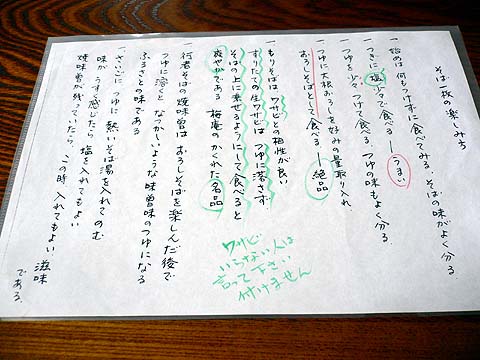 そば一枚の楽しみち
一 始めは 何もつけずに食べてみる、そばの味がよく分る
一 つぎに塩少々で食べる ― うまい
一 つゆを少々つけて食べる、つゆの味もよく分る
一 つゆに大根おろしを好みの量取り入れ
おろしそばとして食べる ― 絶品
一 もりそばは ワサビとの相性が良い
すりたての生ワサビは つゆに落さず
そばの上に乗せるようにして食べると
爽やかである 梅庵のかくれた名品
一 行者そばの焼味噌は おろしそばを楽しんだ後で
つゆに溶くと なつかしいような味噌味のつゆになる
ふるさとの味である
一 さいごに つゆに 熱いそば湯を入れてのむ
味が うすく感じたら 塩を入れてもよい
焼味噌が残ってたら この時 入れてもよい 滋味
である、
ワサビ
いらない人は
言って下さい
付けません